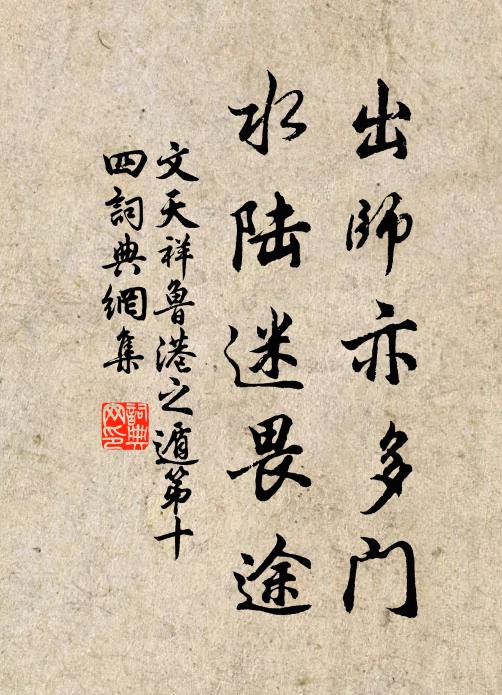 出师亦多门
水陆迷畏途
文天祥鲁港之遁第十
四词典網集
詞典
网印